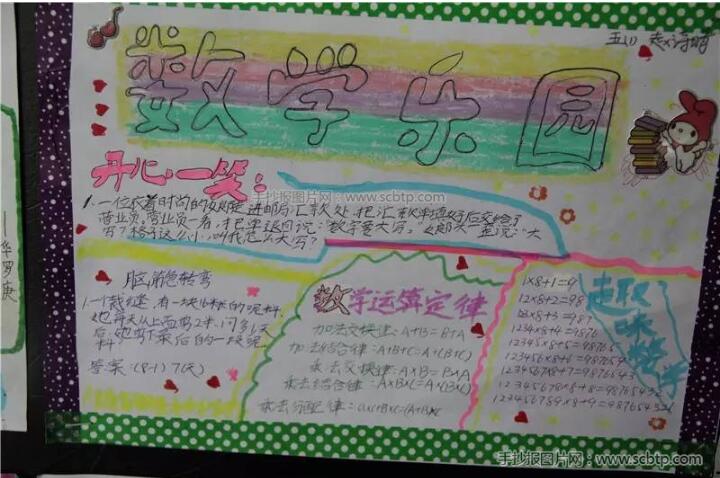 五(1)
数学乐园
开心一笑：
手抄报图片网：www.scbtp.com
1.一位 时尚的 进邮局汇款处,把汇款单填好后交给了
营业员,营业员一看,把单退回说:"数字要大写。" 说:"大
写?格子这么小,叫我怎么大写?
脑筋急转弯
1.一个裁缝,有一块16米的呢料,
她每天从上面剪2米,问多少天
后,她剪下最后的一块呢
料?
答案:(8-1) 7(天)
数学运算定律
加法交换律:A+B=B+A
加法结合律:A+B+C=A+(B+C)
乘法交换律:A×B=B×A
乘法结合律:A×B×C=A×(B×C)
乘法分配律:
趣味数学
1×8+1=9
12×8+2=98
×8+3=987
1234×8+4=9876
12345×8+5=98765
123456×8+6=987654
1234567×8+7=
12345678×8+8=98765432
123456789×8+9=987654321
——华罗庚
手抄报图片网：www.scbtp.com